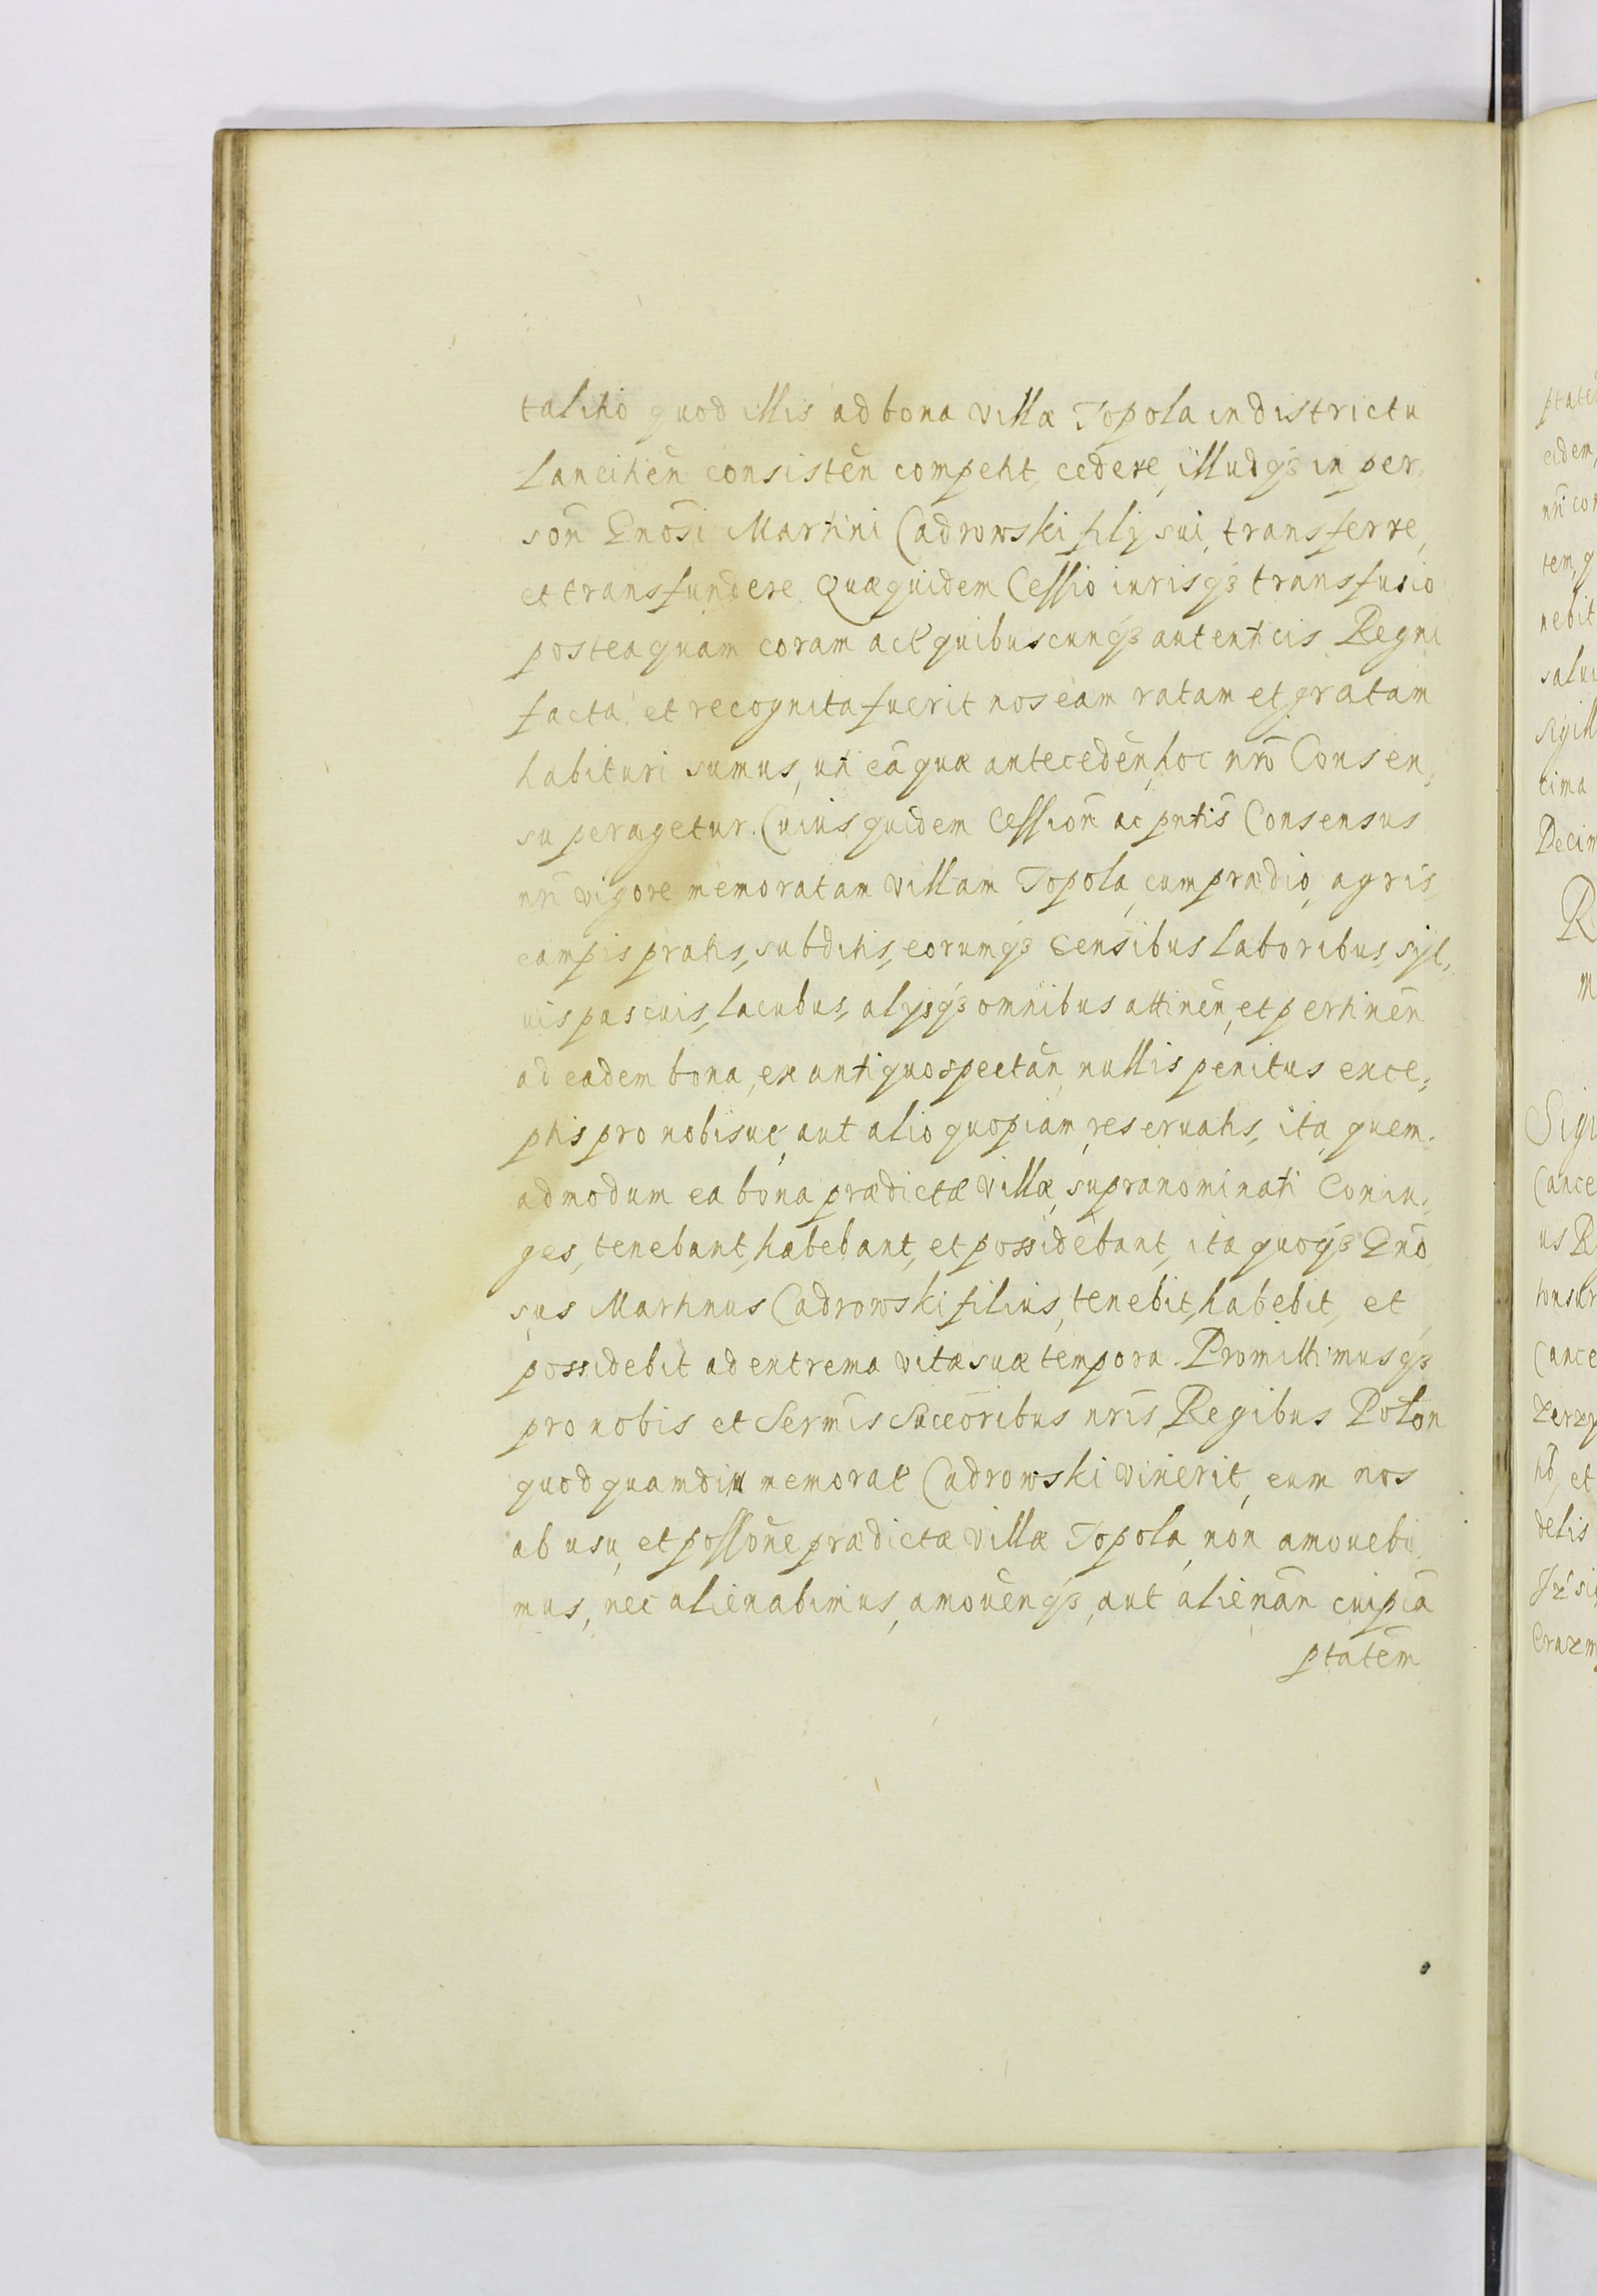 talitio quod illis ad bona villæ Topola in districtu
Lancitień consisteñ competit, cedere, illudqꝫ in per
soñ Gnosi Martini Cadrowski filij sui, transferre,
et transfundere. Quæquidem Cessio iurisqꝫ transfusio
posteaquam coram act quibuscunqꝫ autenticis Regni
facta et recognita fuerit nos eam ratam et gratam
habituri sumus, uti eã quæ antecedeñ, hoc nrõ Consen,
su peragetur. Cuius quidem Cessioñ ac pñtis Consensus
nri vigore memoratam villam Topola, cum prædio, agris,
campis pratis, subditis, eorumqꝫ censibus laboribus, syl,
uis pascuis, lacubus, alijsqꝫ omnibus attineñ, et pertineñ
ad eadem bona, ex antiquo spectañ, nullis penitus exce,
ptis pro nobisue, aut alio quopiam, reseruatis, ita, quem.
admodum ea bona prædictæ villæ, supranominati Coniu,
ges, tenebant, habebant, et possidebant, ita quoqꝫ Gno
sus Martinus Cadrowski filius, tenebit, habebit, et
possidebit ad extrema vitæ suæ tempora. Promittimusqꝫ
pro nobis et Sermis Succoribus nris Regibus Polon
quod quamdiu memorat Cadrowski vixerit, eum nos
ab usu, et possone prædictæ villæ Topola, non amouebi
mus, nec alienabimus, amoueñqꝫ, aut alienañ cuipiã
ptatem
ptatem
eidem,
nri con
tem, q
nebit
salui
sigill
cima
Decim
R
m
Sigi
Cance
us R
Cance
et
delis